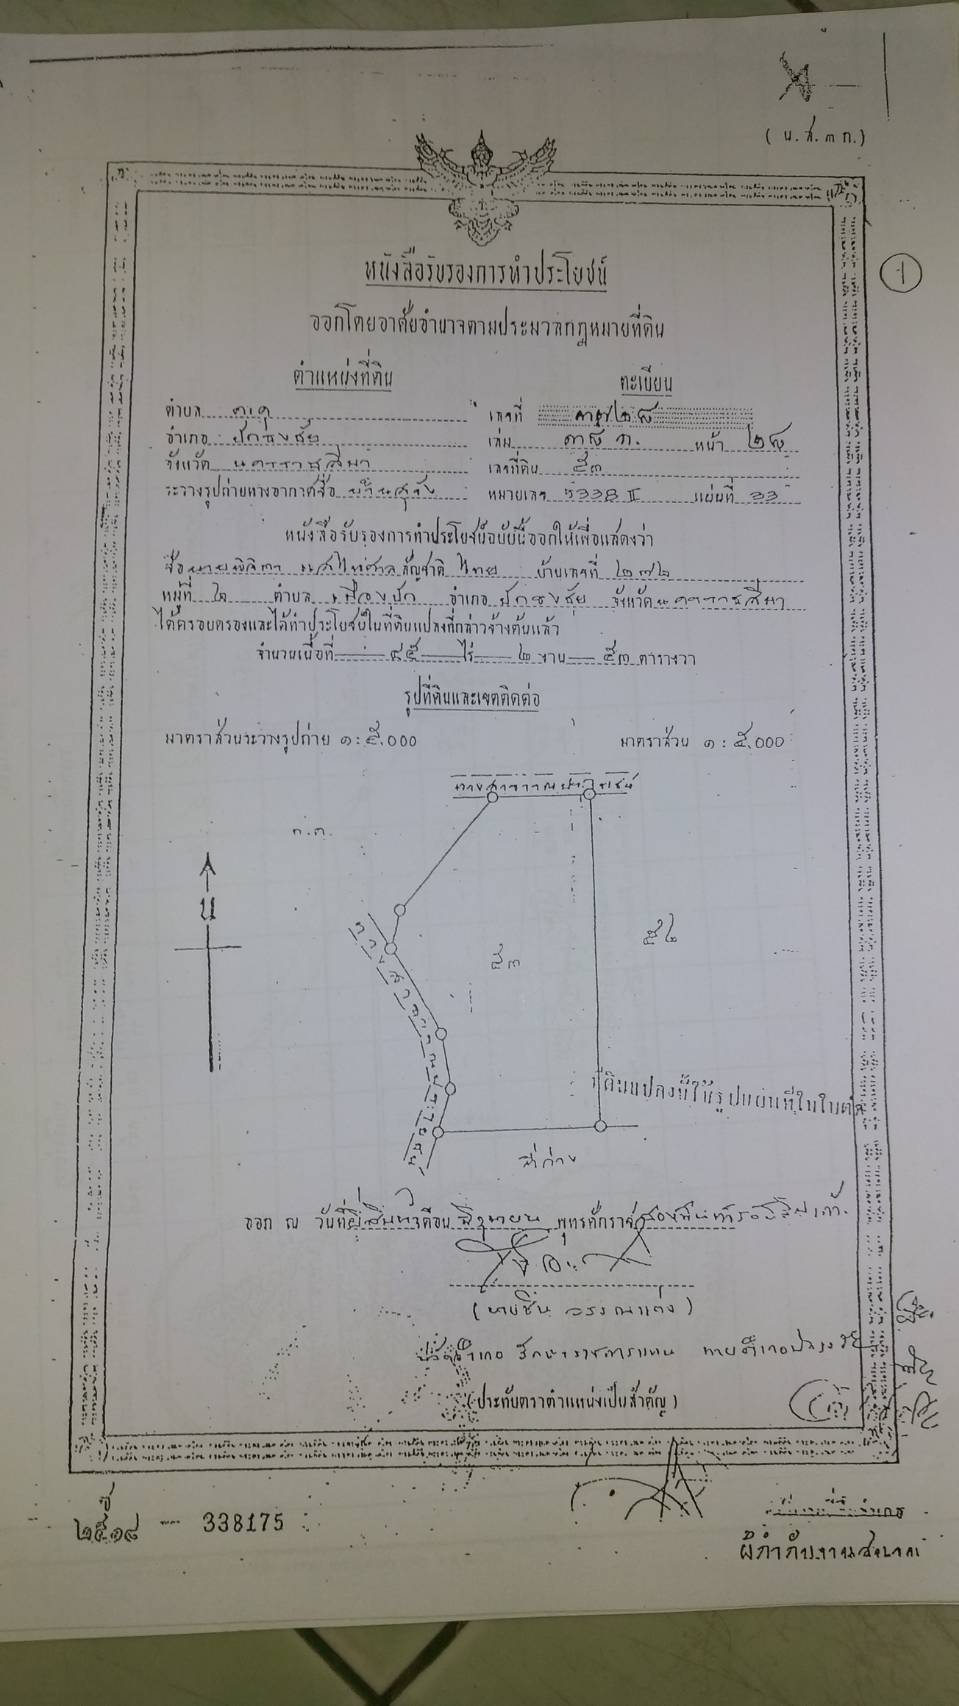 (น.ส.๓ ก.)
หนังสือรับรองการทำประโยชน์
1
ออกโดยอาศัยอำนาจตามประมวลกฎหมายที่ดิน
ตำแหน่งที่ดิน
ทะเบียน
ตำบล
เลขที่
อำเภอ ปักธงชัย
เล่ม หน้า ๒๘
จังหวัด นครราชสีมา
เลขที่ดิน ๕๓
ระวางรูปถ่ายทางอากาศชื่อ
หมายเลข 5338 II แผ่นที่ 33
หนังสือรับรองการทำประโยชน์ฉบับนี้ออกให้เพื่อแสดงว่า
ชื่อ นาย สัญชาติ ไทย บ้านเลขที่ ๒๗๒
หมู่ที่ ๒ ตำบล เมืองปัก อำเภอ ปักธงชัย จังหวัด นครราชสีมา
ได้ครอบครองและได้ทำประโยชน์ในที่ดินแปลงที่กล่าวข้างต้นแล้ว
จำนวนเนื้อที่ ๔๕ ไร่ ๒ งาน ๕๓ ตารางวา
รูปที่ดินและเขตติดต่อ
มาตราส่วนระวางรูปถ่าย ๑:๕.000
มาตราส่วน ๑ : ๕.000
ทางสาธารณประโยชน์
น
๕๓
๕๒
ทางสาธารณประโยชน์
ที่ดินแปลงนี้ใช้รูปแผนที่ในใบต่อ
ที่ว่าง
ออก ณ วันที่ ยี่สิบห้า เดือน มิถุนายน พุทธศักราช สองพันห้าร้อยสิบเก้า
(นายชื่น
ปลัดอำเภอ รักษาราชการแทน นายอำเภอปักธงชัย
(ประทับตราตำแหน่งเป็นสำคัญ)
ปี
๒๕๑๘ — 338175
เจ้าพนักงานที่ดินอำเภอ